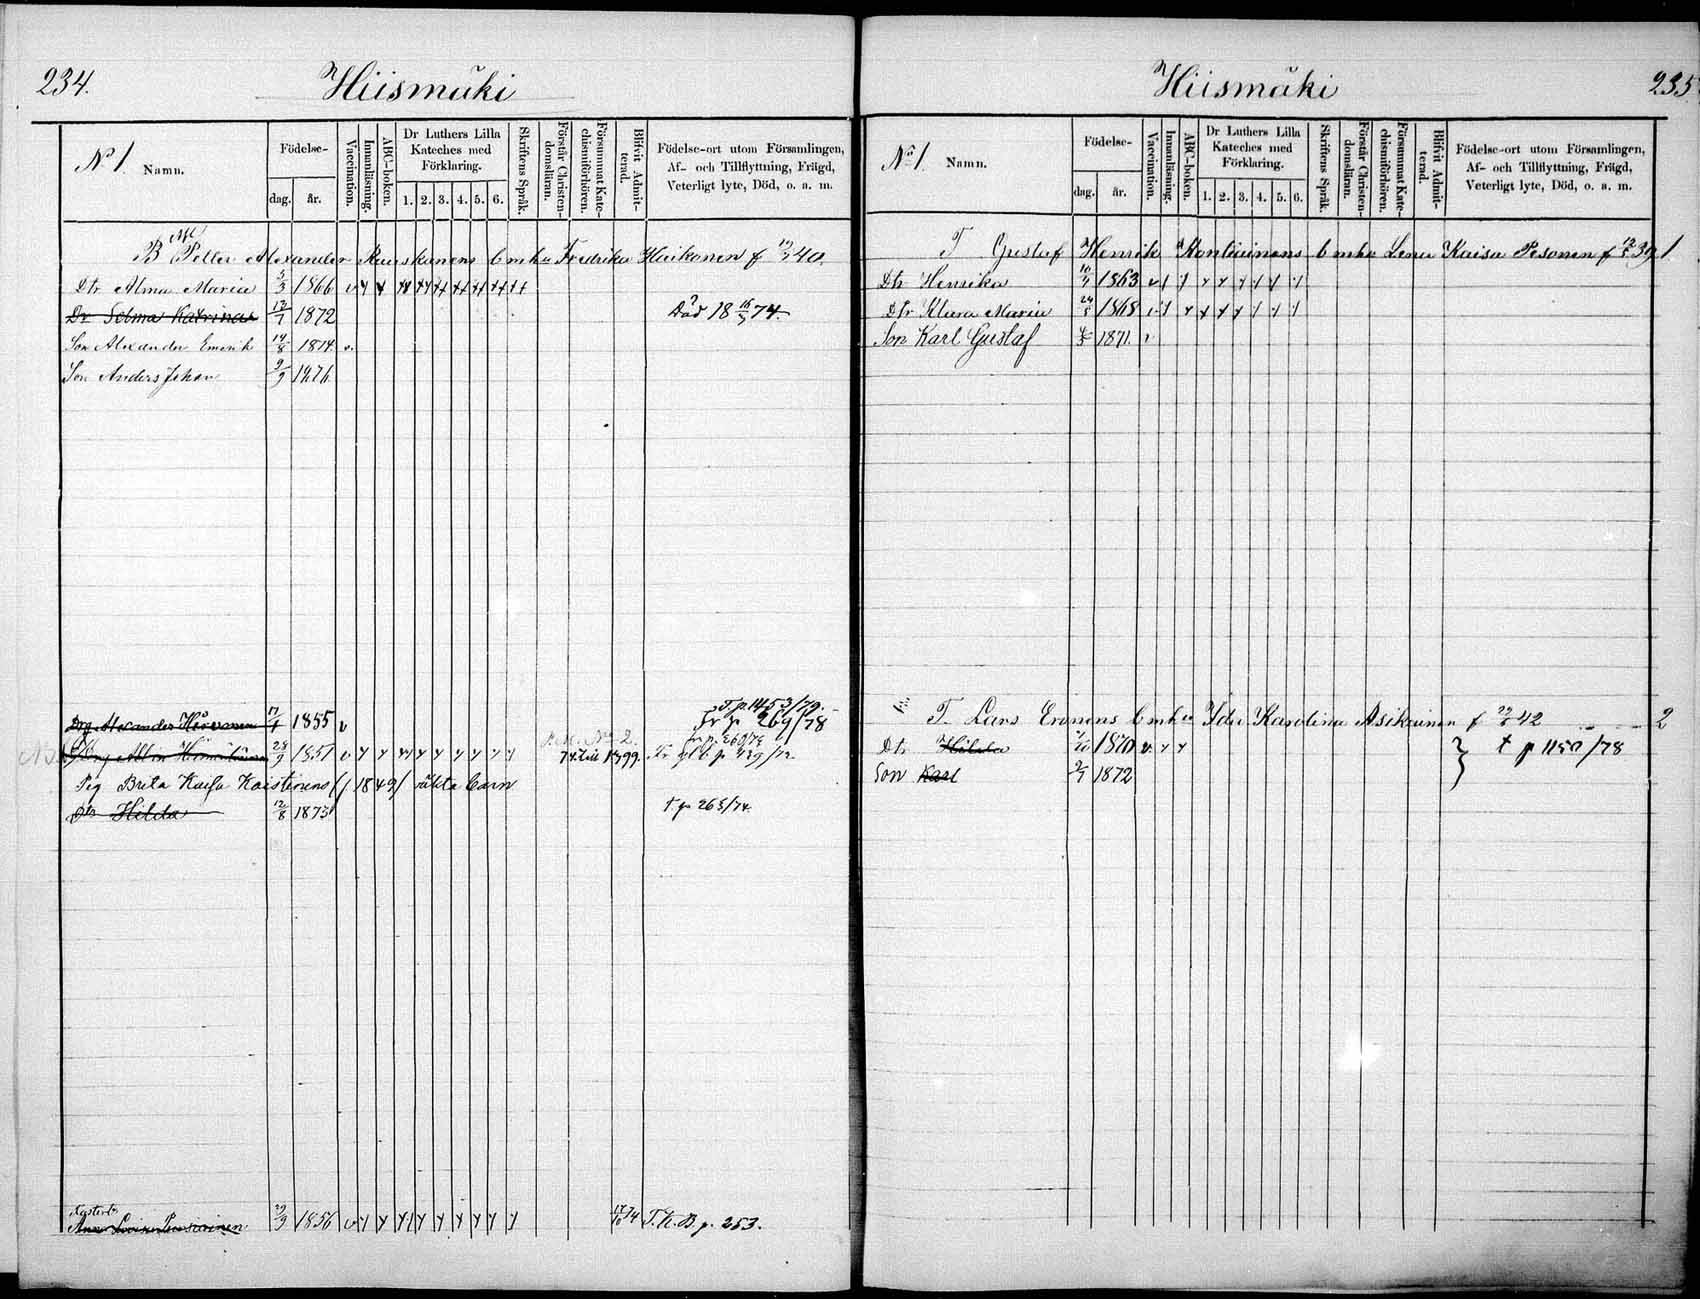 234.
Hiismäki
No 1. Namn.
Födelse-
dag. år.
Vaccination.
Innanläsning.
ABC-boken.
Dr Luthers Lilla
Kateches med
Förklaring.
1. 2. 3. 4. 5. 6.
Skriftens Språk.
Förstår Christen-
domsläran.
Försummat Kate-
chismiförhören.
Blifvit Admit-
terad.
Födelse-ort utom Församlingen,
Af- och Tillflyttning, Frägd,
Veterligt lyte, Död, o. a. m.
B Petter Alexander Ruuskanens b m hu Fredrika Huikonen f 40.
Dtr Alma Maria 3/3 1866
Dr Selma Katrina 1872 Död 18 74.
Son Alexander Emerik 14/8 1874
Son Anders Johan 2/9 1876
T. p. 1453/79.
Drg. Alexander 17/1 1855 fr p 269/78
No 2.
28/9 1851 74 till 1399.
Pig Brita Kaisa Kaistinens (f 1849) oäkta barn
Dtr Hilda 12/8 1873 t p 268/74.
Anna Lovisa 29/9 1856 T. K. B. p. 253.
Hiismäki
235
No 1. Namn.
Födelse-
dag. år.
Vaccination.
Innanläsning.
ABC-boken.
Dr Luthers Lilla
Kateches med
Förklaring.
1. 2. 3. 4. 5. 6.
Skriftens Språk.
Förstår Christen-
domsläran.
Försummat Kate-
chismiförhören.
Blifvit Admit-
terad.
Födelse-ort utom Församlingen,
Af- och Tillflyttning, Frägd,
Veterligt lyte, Död, o. a. m.
T Gustaf Henrik Kontiainens b m hu Lena Kaisa Pesonen f 39 1
Dtr Henrika 1863
Dtr Klara Maria 24/5 1868
Son Karl Gustaf 1871.
T. Lars Eronens b m hu Ida Karolina Asikainen f 42 2
Dtr Hilda 1870 t p 1150/78
Son Karl 2/7 1872